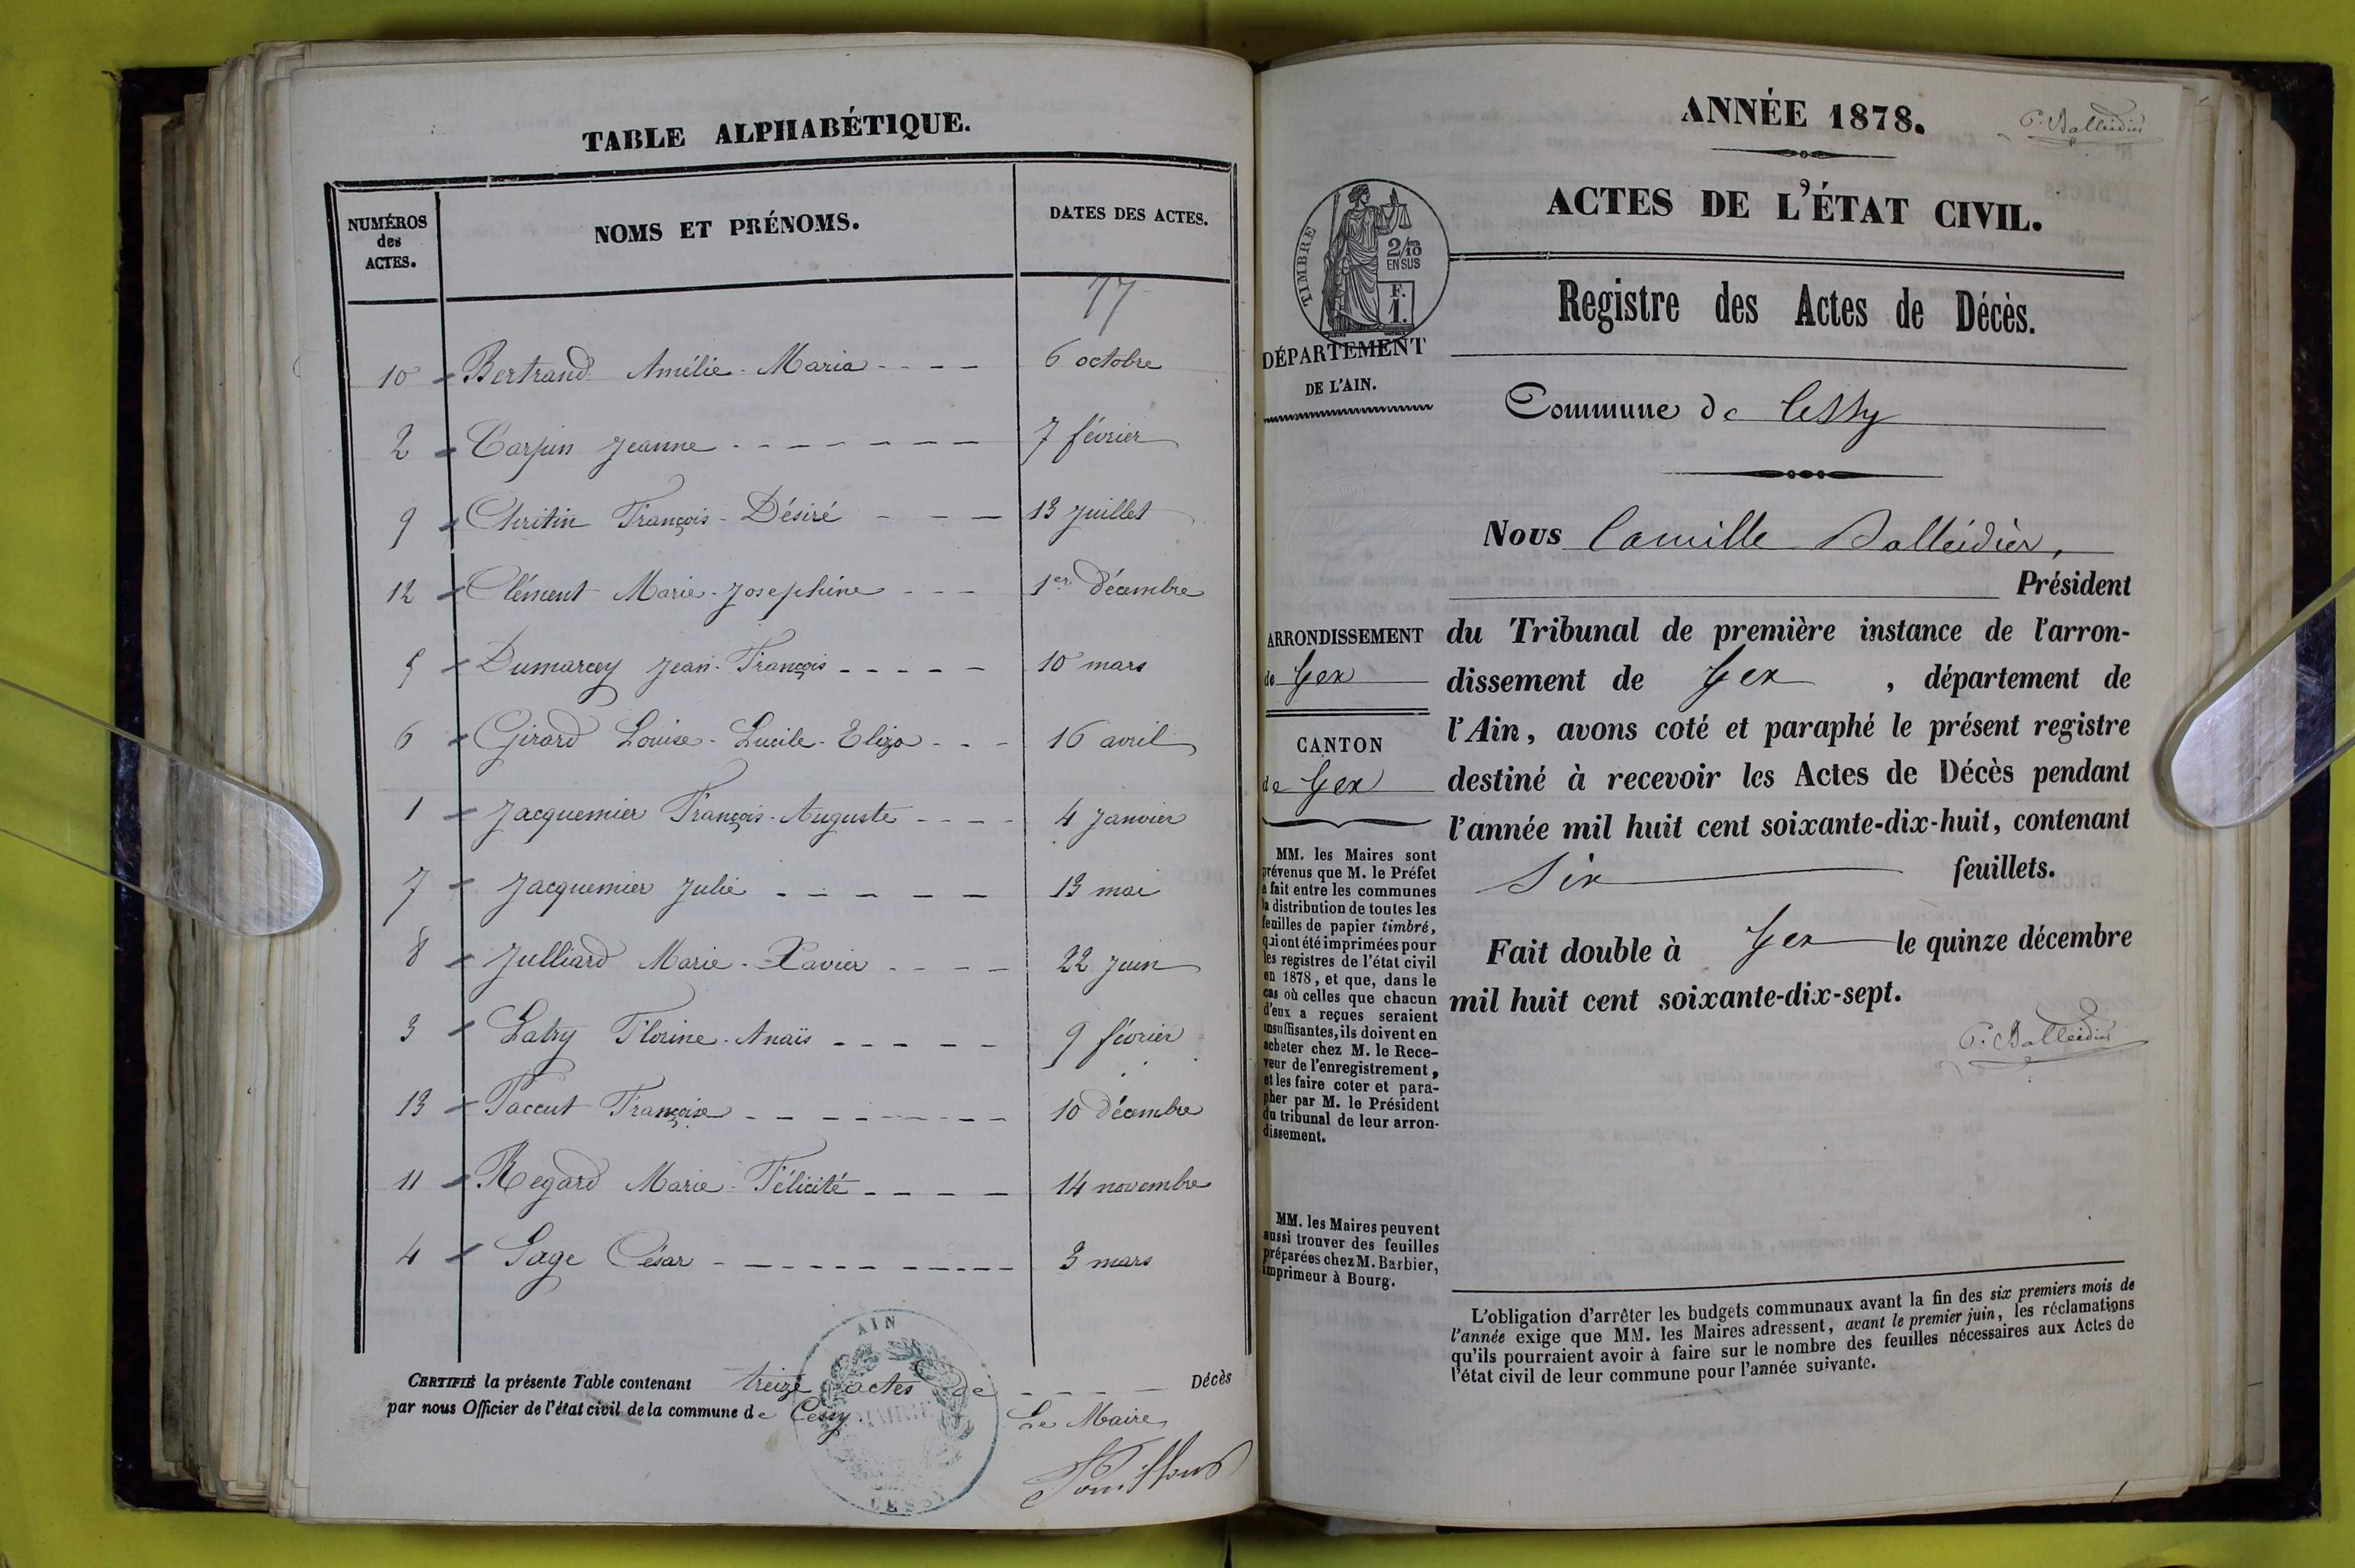 TABLE ALPHABÉTIQUE.
NUMÉROS
des
ACTES.
NOMS ET PRÉNOMS.
DATES DES ACTES.
77
10 Bertrand Amélie-Maria - - - - 6 octobre
2 Carpin Jeanne - - - - - - - 7 février
9 Chritin François-Désiré - - - 13 Juillet
12 Clément Marie-Josephine - - - 1er Décembre
5 Dumarcey Jean-François - - - - - 10 mars
6 Girard Louise-Lucile-Eliza - - - 16 avril
1 Jacquemier François-Auguste - - - - 4 Janvier
7 Jacquemier Julie - - - - - 13 mai
8 Julliard Marie-Xavier - - - - 22 Juin
3 Latry Florine-Anaïs - - - - - 9 février
13 Paccut Françoise - - - - - - - - 10 Décembre
11 Regard Marie-Félicité - - - - 14 novembre
4 Sage César - - - - - - - - - - 3 mars
CERTIFIÉ la présente Table contenant treize actes de - - - - Décès
par nous Officier de l'état civil de la commune de Cessy
Le Maire
AIN
MAIRIE
CESSY
ANNÉE 1878.
C. Balleidier
ACTES DE L'ÉTAT CIVIL.
TIMBRE
2/10
EN SUS
F.
1.
Registre des Actes de Décès.
DÉPARTEMENT
DE L'AIN.
Commune de Cessy
Nous Camille Balleidier,
Président
ARRONDISSEMENT
de Gex
CANTON
de Gex
du Tribunal de première instance de l'arron-
dissement de Gex , département de
l'Ain, avons coté et paraphé le présent registre
destiné à recevoir les Actes de Décès pendant
l'année mil huit cent soixante-dix-huit, contenant
Six feuillets.
Fait double à Gex le quinze décembre
mil huit cent soixante-dix-sept.
C. Balleidier
MM. les Maires sont
prévenus que M. le Préfet
a fait entre les communes
la distribution de toutes les
feuilles de papier timbré,
qui ont été imprimées pour
les registres de l'état civil
en 1878, et que, dans le
cas où celles que chacun
d'eux a reçues seraient
insuffisantes, ils doivent en
acheter chez M. le Rece-
veur de l'enregistrement,
et les faire coter et para-
pher par M. le Président
du tribunal de leur arron-
dissement.
MM. les Maires peuvent
aussi trouver des feuilles
préparées chez M. Barbier,
imprimeur à Bourg.
L'obligation d'arrêter les budgets communaux avant la fin des six premiers mois de
l'année exige que MM. les Maires adressent, avant le premier juin, les réclamations
qu'ils pourraient avoir à faire sur le nombre des feuilles nécessaires aux Actes de
l'état civil de leur commune pour l'année suivante.